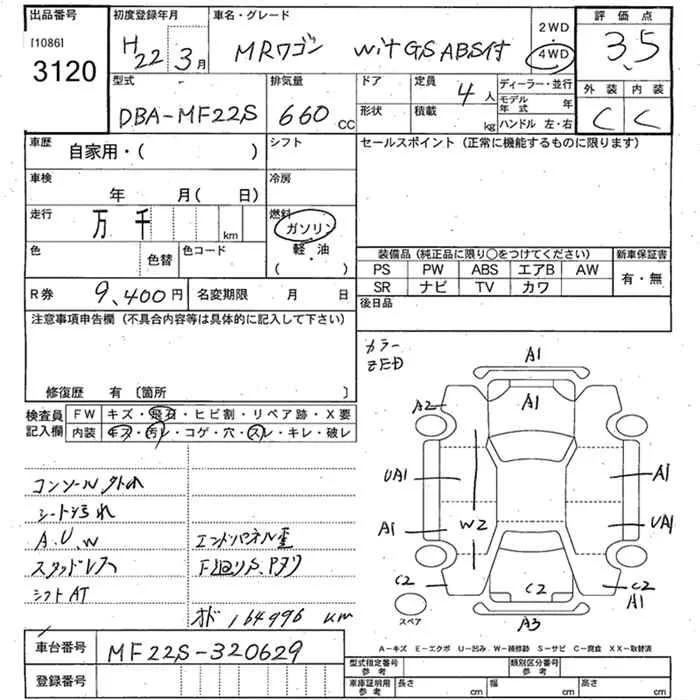 出品番号 初度登録年月 車名・グレード 2WD 評価点
[1086] H22 3月 MRワゴン wit GS ABS付 4WD 3.5
3120
型式 排気量 ドア 定員 4人 ディーラー・並行 外装 内装
DBA-MF22S 660cc 形状 積載 kg モデル年式 年 C C
ハンドル 左・右
車歴 自家用・( ) シフト セールスポイント (正常に機能するものに限ります)
車検 年 月( 日) 冷房
走行 万 千 km 燃料 ガソリン
軽・油
( )
色 色替 色コード
装備品(純正品に限り○をつけてください) 新車保証書
PS PW ABS エアB AW 有・無
SR ナビ TV カワ
R券 9,400円 名変期限 月 日 後日品
注意事項申告欄 (不具合内容等は具体的に記入して下さい)
修復歴 有 〔箇所 〕
カラー
ZED
検査員記入欄 FW キズ・飛石・ヒビ割・リペア跡・X要
内装 キズ・汚レ・コゲ・穴・スレ・キレ・破レ
コンソール外れ
シート汚れ
A.U.W エンドパネル歪
スタッドレス
シフトAT
オド 164996 km
A1
A1
A2
UA1 A1
A1 W2 UA1
C2 C2 C2
A1
A3
スペア
A-キズ E-エクボ U-凹み W-補修跡 S-サビ C-腐食 XX-取替済
車台番号 MF22S-320629
登録番号
型式指定番号 参考 類別区分番号 参考
車庫証明用 参考 長さ cm 幅 cm 高さ cm